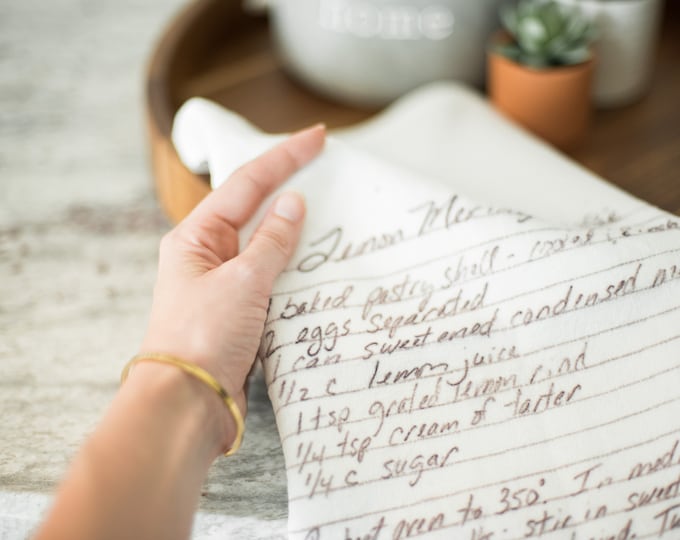 home
Lemon Mering
1 baked pastry shell - cooled
2 eggs separated
1 can sweetened condensed mi
1/2 c lemon juice
1 tsp grated lemon rind
1/4 tsp cream of tarter
1/4 c sugar
oven to 350°. In med
stir in sweet